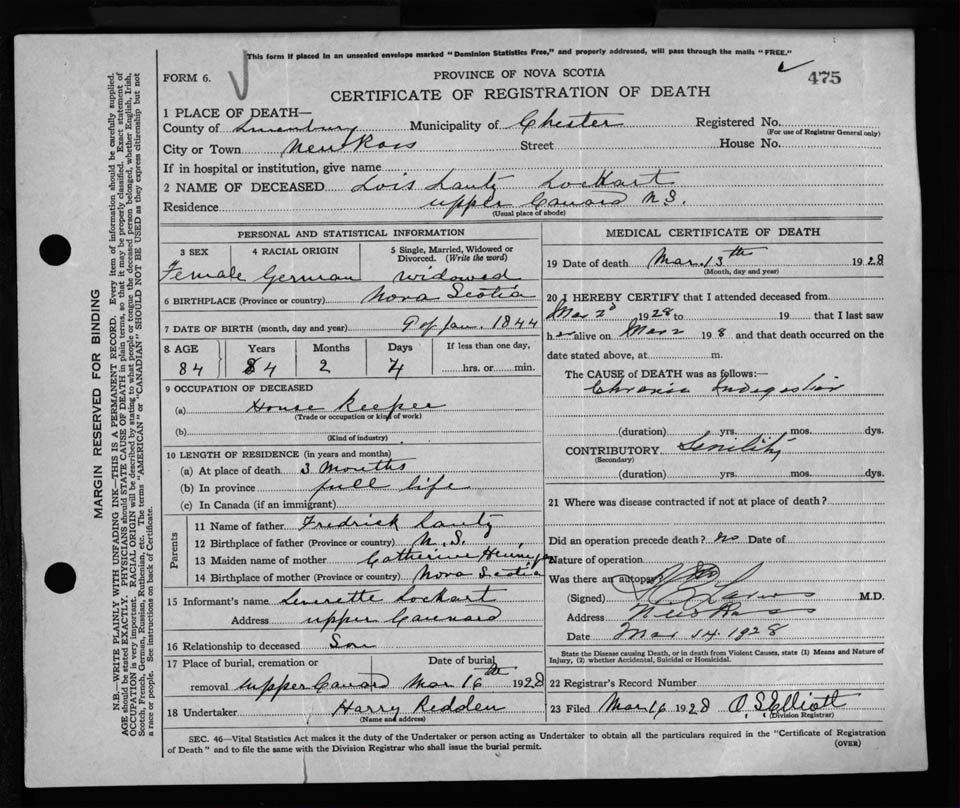 This form if placed in an unsealed envelope marked "Dominion Statistics Free," and properly addressed, will pass through the mails "FREE."
FORM 6.
PROVINCE OF NOVA SCOTIA
475
CERTIFICATE OF REGISTRATION OF DEATH
1 PLACE OF DEATH—
County of Lunenburg Municipality of Chester Registered No.
(For use of Registrar General only)
City or Town New Ross Street House No.
If in hospital or institution, give name
2 NAME OF DECEASED Lois Lantz Lockhart
Residence upper Canard N.S.
(Usual place of abode)
PERSONAL AND STATISTICAL INFORMATION
3 SEX 4 RACIAL ORIGIN 5 Single, Married, Widowed or Divorced. (Write the word)
Female German Widowed
6 BIRTHPLACE (Province or country) Nova Scotia
7 DATE OF BIRTH (month, day and year) 9 of Jan. 1844
8 AGE Years Months Days If less than one day,
84 84 2 4 hrs. or min.
9 OCCUPATION OF DECEASED
(a) House Keeper
(Trade or occupation or kind of work)
(b)
(Kind of industry)
10 LENGTH OF RESIDENCE (in years and months)
(a) At place of death 3 Months
(b) In province full life
(c) In Canada (if an immigrant)
Parents
11 Name of father Fredrick Lantz
12 Birthplace of father (Province or country) N.S.
13 Maiden name of mother Catherine
14 Birthplace of mother (Province or country) Nova Scotia
15 Informant's name Lockhart
Address upper Cannard
16 Relationship to deceased Son
17 Place of burial, cremation or Date of burial
removal upper Canard Mar 16th 1928
18 Undertaker Harry Redden
(Name and address)
MEDICAL CERTIFICATE OF DEATH
19 Date of death Mar. 13th 1928
(Month, day and year)
20 I HEREBY CERTIFY that I attended deceased from
Mar 2d 1928 to 19 that I last saw
her alive on Mar 2 198 and that death occurred on the
date stated above, at m.
The CAUSE of DEATH was as follows:—
Chronic Indigestion
(duration) yrs. mos. dys.
CONTRIBUTORY Senility
(Secondary)
(duration) yrs. mos. dys.
21 Where was disease contracted if not at place of death?
Did an operation precede death? no Date of
Nature of operation
Was there an autopsy?
(Signed) M.D.
Address New Ross
Date Mar 14. 1928
State the Disease causing Death, or in death from Violent Causes, state (1) Means and Nature of Injury, (2) whether Accidental, Suicidal or Homicidal.
22 Registrar's Record Number
23 Filed Mar 16 1928 O. S. Elliott
(Division Registrar)
SEC. 46—Vital Statistics Act makes it the duty of the Undertaker or person acting as Undertaker to obtain all the particulars required in the "Certificate of Registration
of Death" and to file the same with the Division Registrar who shall issue the burial permit.
(OVER)
MARGIN RESERVED FOR BINDING
N.B.—WRITE PLAINLY WITH UNFADING INK—THIS IS A PERMANENT RECORD. Every item of information should be carefully supplied.
AGE should be stated EXACTLY. PHYSICIANS should STATE CAUSE OF DEATH in plain terms, so that it may be properly classified. Exact statement of
OCCUPATION is very important. RACIAL ORIGIN will be described by stating to what people or tongue the deceased person belonged, whether English, Irish,
Scotch, French, German, Russian, Ruthenian, etc. The terms "AMERICAN" or "CANADIAN" SHOULD NOT BE USED as they express citizenship but not
a race or people. See instructions on back of Certificate.